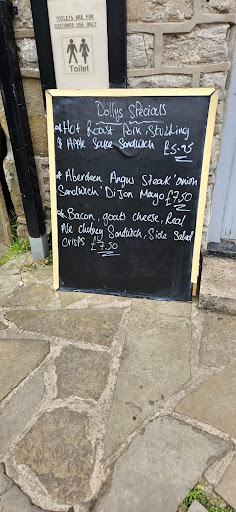 TOILETS ARE FOR
CUSTOMER USE ONLY
Toilet
Dollys Specials
* Hot Roast Pork, Stuffing
& Apple Sauce Sandwich £5.95
* Aberdeen Angus Steak 'onion
Sandwich' Dijon Mayo £7.50
* Bacon, goats cheese, Real
Ale chutney Sandwich, Side Salad
Crisps £7.50